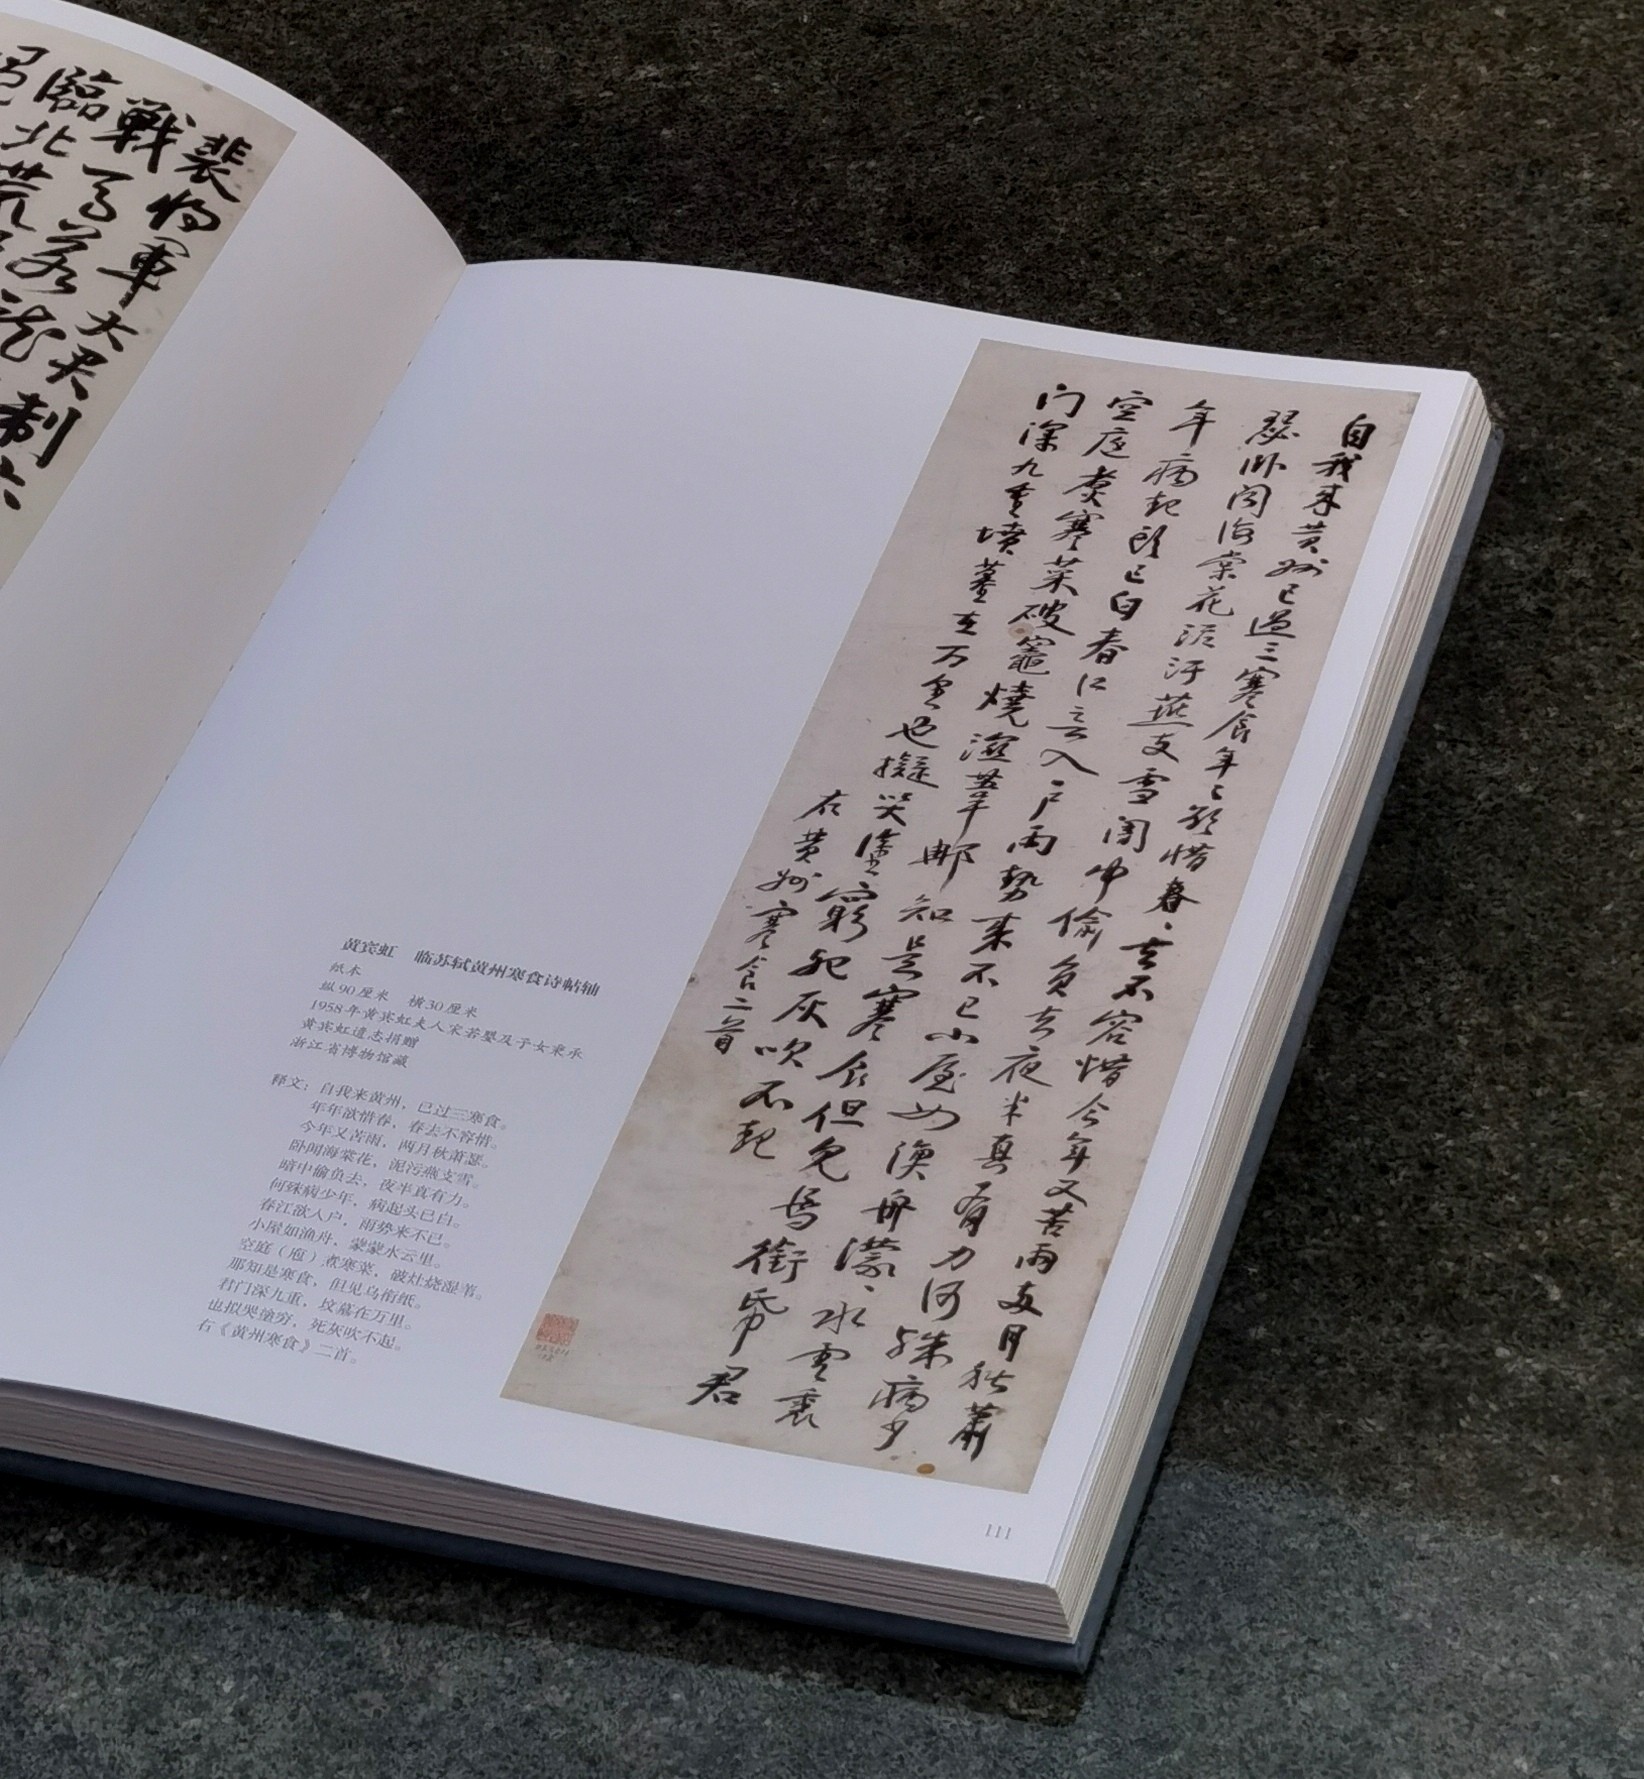 裴将軍大君制六
戰馬若龍
臨北荒
自我来黄州已過三寒食年〻欲惜春〻去不容惜今年又苦雨兩月秋蕭
瑟卧闻海棠花泥汙燕支雪闇中偷負去夜半真有力何殊病少
年病起頭已白春江欲入户雨勢来不已小屋如漁舟濛〻水雲裏
空庭煮寒菜破竈燒溼葦那知是寒食但見烏銜帋君
门深九重墳墓在万里也擬哭塗窮死灰吹不起
右黄州寒食二首
黄宾虹 临苏轼黄州寒食诗帖轴
纸本
纵90厘米 横30厘米
1958年黄宾虹夫人宋若婴及子女秉承
黄宾虹遗志捐赠
浙江省博物馆藏
释文：自我来黄州，已过三寒食。
年年欲惜春，春去不容惜。
今年又苦雨，两月秋萧瑟。
卧闻海棠花，泥污燕支雪。
暗中偷负去，夜半真有力。
何殊病少年，病起头已白。
春江欲入户，雨势来不已。
小屋如渔舟，蒙蒙水云里。
空庭（庖）煮寒菜，破灶烧湿苇。
那知是寒食，但见乌衔纸。
君门深九重，坟墓在万里。
也拟哭塗穷，死灰吹不起。
右《黄州寒食》二首。
111